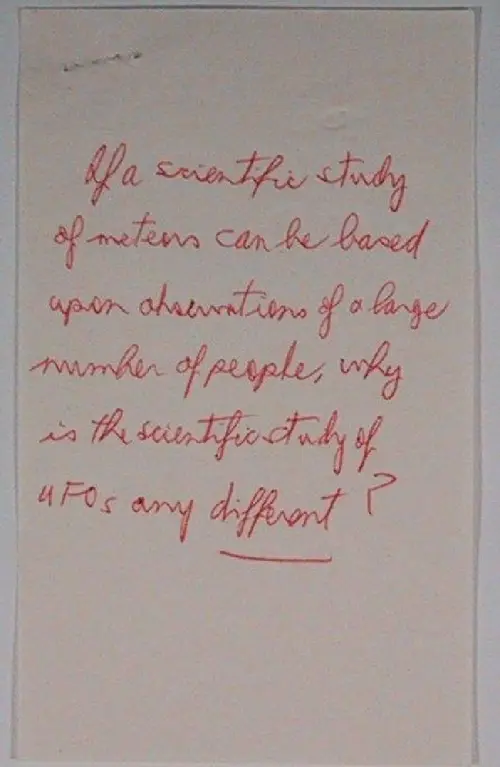 If a scientific study
of meteors can be based
upon observations of a large
number of people, why
is the scientific study of
UFOs any different?